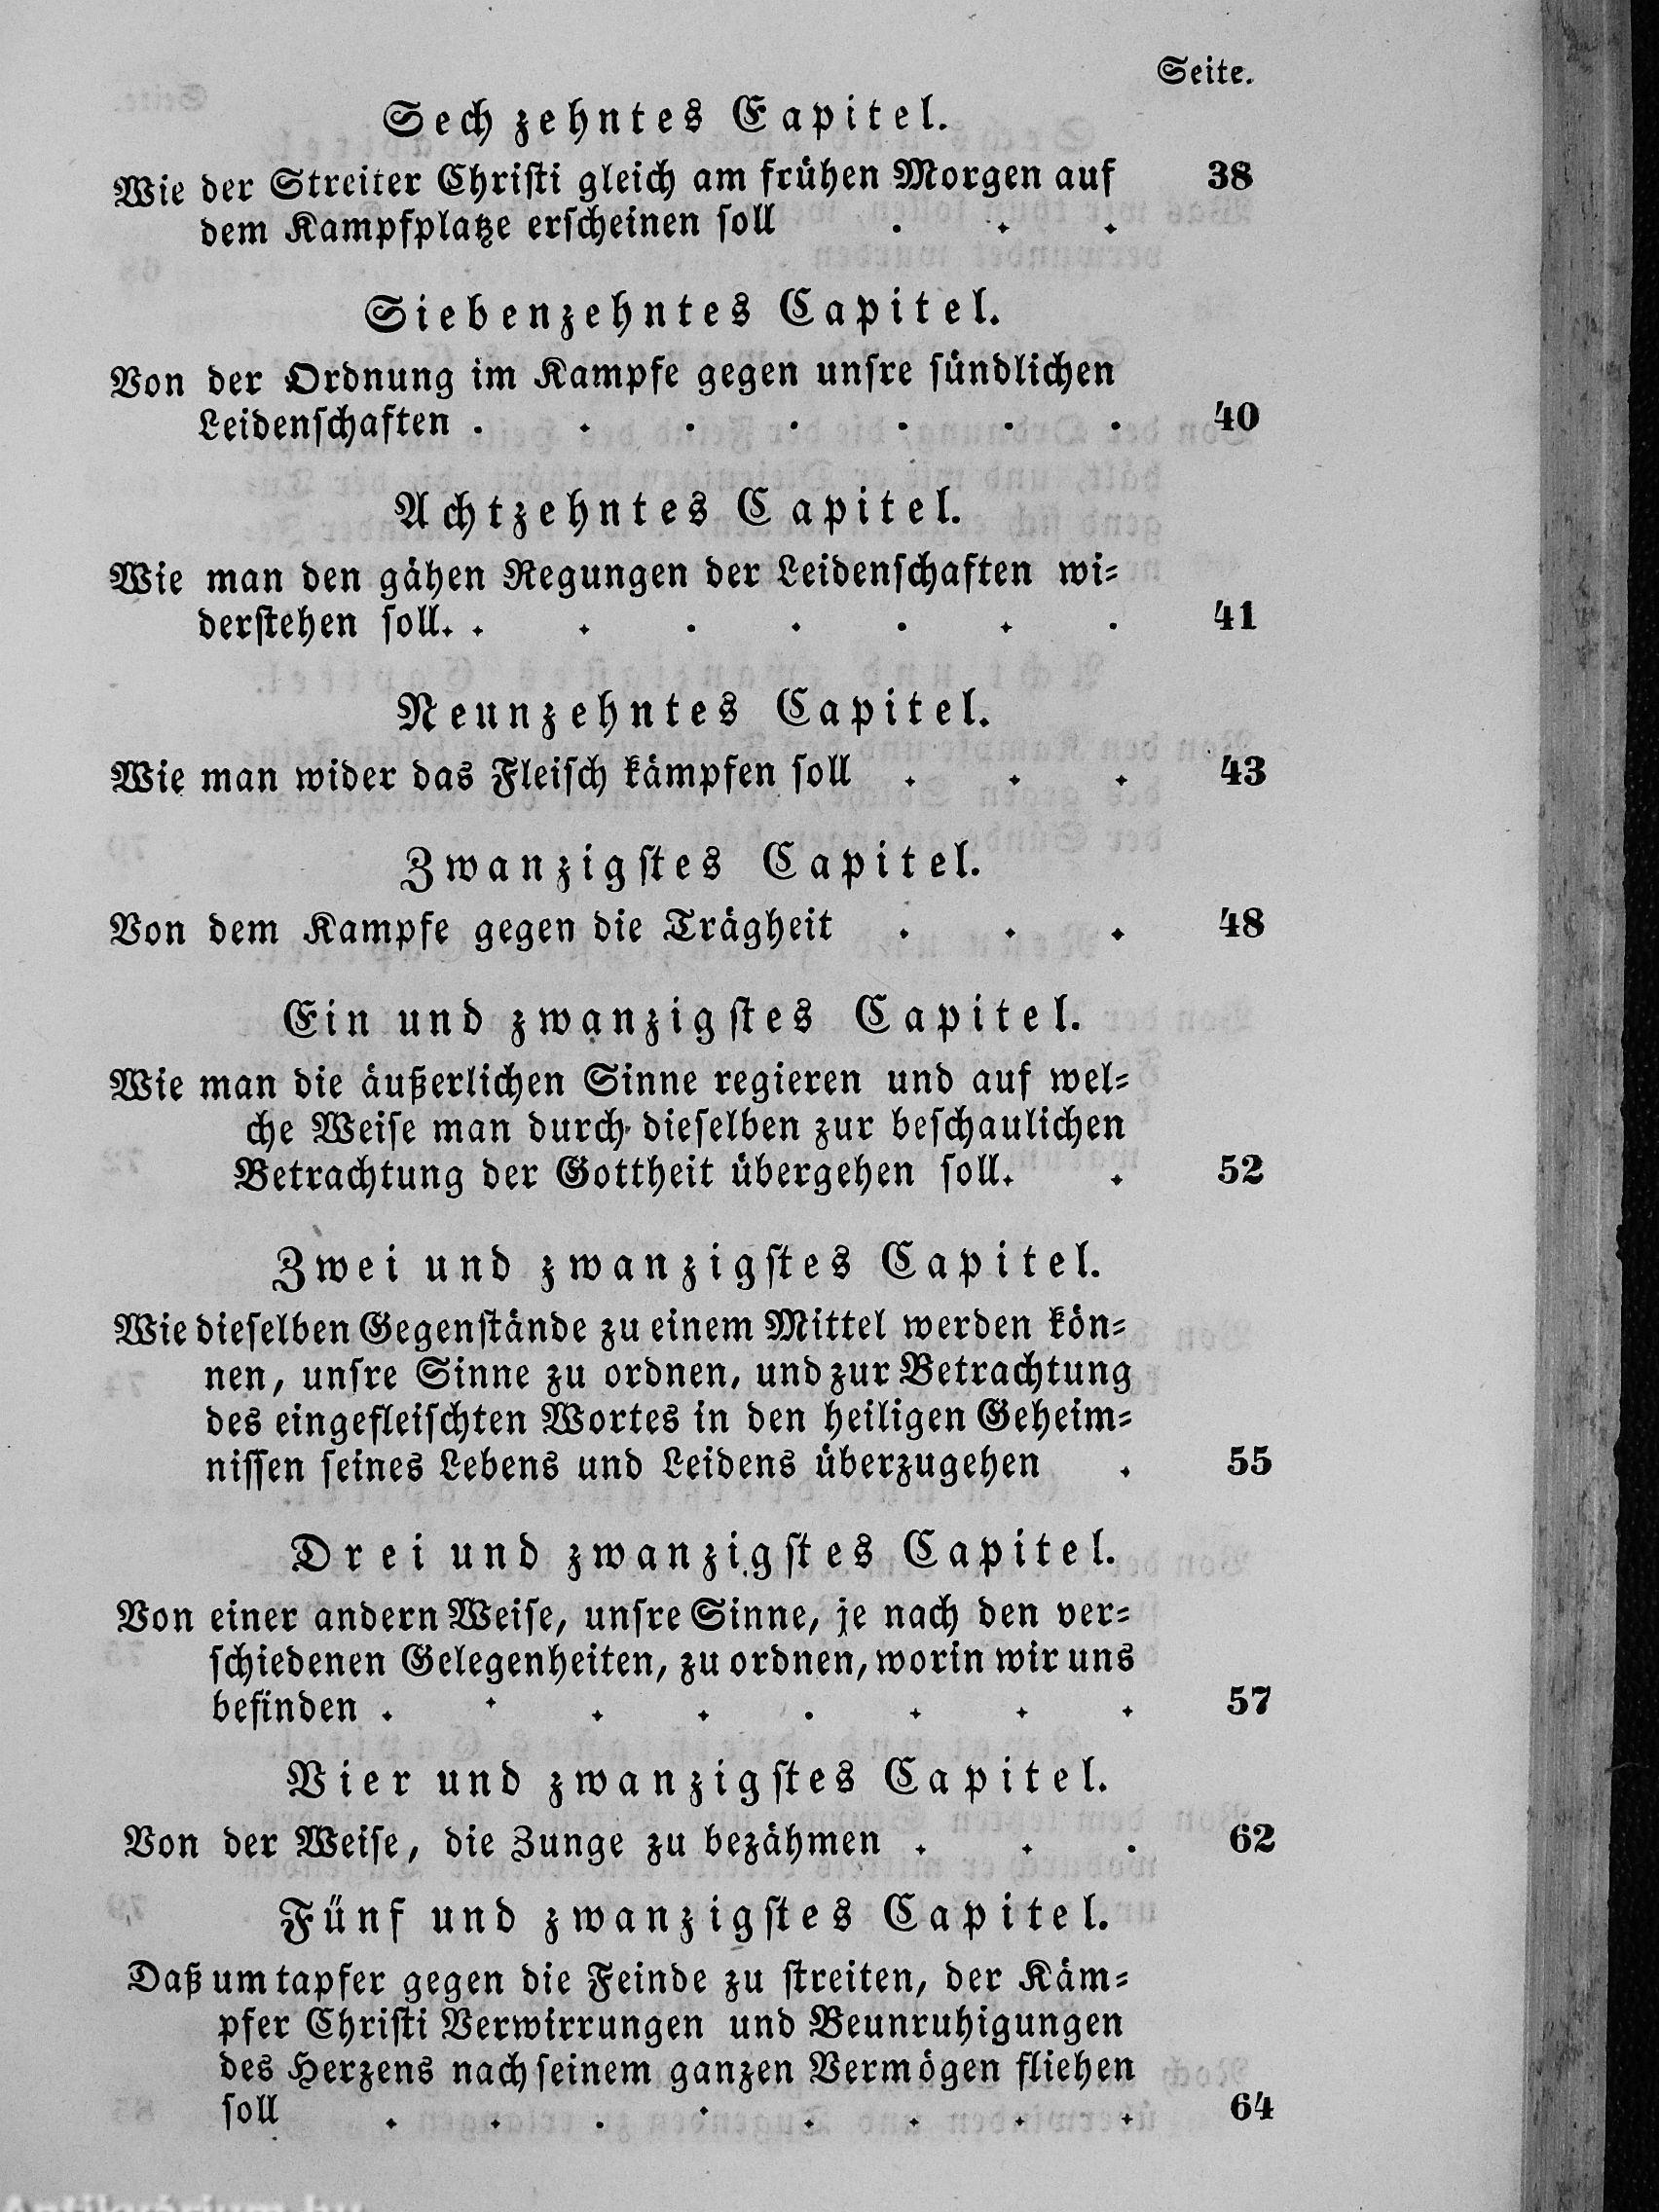 Seite.
Sechzehntes Capitel.
Wie der Streiter Christi gleich am frühen Morgen auf 38
dem Kampfplatze erscheinen soll . . .
Siebenzehntes Capitel.
Von der Ordnung im Kampfe gegen unsre sündlichen
Leidenschaften . . . . . . . 40
Achtzehntes Capitel.
Wie man den gähen Regungen der Leidenschaften wi-
derstehen soll. . . . . . . . 41
Neunzehntes Capitel.
Wie man wider das Fleisch kämpfen soll . . . 43
Zwanzigstes Capitel.
Von dem Kampfe gegen die Trägheit . . . 48
Ein und zwanzigstes Capitel.
Wie man die äußerlichen Sinne regieren und auf wel-
che Weise man durch dieselben zur beschaulichen
Betrachtung der Gottheit übergehen soll. . 52
Zwei und zwanzigstes Capitel.
Wie dieselben Gegenstände zu einem Mittel werden kön-
nen, unsre Sinne zu ordnen, und zur Betrachtung
des eingefleischten Wortes in den heiligen Geheim-
nissen seines Lebens und Leidens überzugehen . 55
Drei und zwanzigstes Capitel.
Von einer andern Weise, unsre Sinne, je nach den ver-
schiedenen Gelegenheiten, zu ordnen, worin wir uns
befinden . . . . . . . . 57
Vier und zwanzigstes Capitel.
Von der Weise, die Zunge zu bezähmen . . . 62
Fünf und zwanzigstes Capitel.
Daß um tapfer gegen die Feinde zu streiten, der Käm-
pfer Christi Verwirrungen und Beunruhigungen
des Herzens nach seinem ganzen Vermögen fliehen
soll . . . . . . . . 64